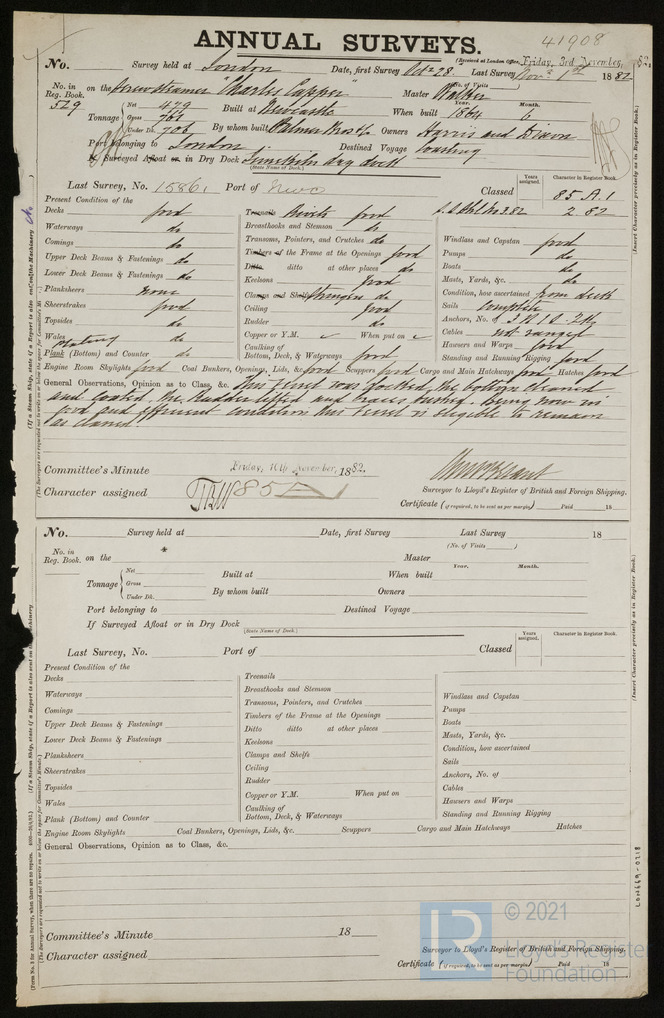 ANNUAL SURVEYS.
41908
(Received at London Office, Friday, 3rd November, 82.
No. Survey held at London Date, first Survey Oct 28 Last Survey Nov 1st 1882
(No. of Visits )
No. in Reg. Book. 529 on the Screw steamer "Charles Capper" Master Walker
Tonnage Net 479 Gross 761 Under Dk. 706 Built at Newcastle When built Year. 1864 Month. 6
By whom built Palmer Bros & Co Owners Harris and Dixon
Port belonging to London Destined Voyage Coasting
If Surveyed Afloat or in Dry Dock Limekiln dry dock
(State Name of Dock.)
Last Survey, No. 15861 Port of Nwc Classed Years assigned. Character in Register Book. 85 A.1
Present Condition of the
Decks good Treenails Rivets good 2.82
Waterways do Breasthooks and Stemson do
Comings do Transoms, Pointers, and Crutches do Windlass and Capstan good
Upper Deck Beams & Fastenings do Timbers of the Frame at the Openings good Pumps do
Lower Deck Beams & Fastenings do Ditto ditto at other places do Boats do
Planksheers none Keelsons good Masts, Yards, &c. do
Sheerstrakes good Clamps and Shelfs Stringers do Condition, how ascertained from deck
Topsides do Ceiling good Sails Complete
Wales Plating do Rudder do Anchors, No. of
Plank (Bottom) and Counter do Copper or Y.M. When put on Cables
Caulking of Bottom, Deck, & Waterways good Hawsers and Warps good
Standing and Running Rigging good
Engine Room Skylights good Coal Bunkers, Openings, Lids, &c. good Scuppers good Cargo and Main Hatchways good Hatches good
General Observations, Opinion as to Class, &c. This Vessel was docked, the bottom cleaned
and coated, the Rudder lifted and braces bushed. Being now in
good and efficient condition this Vessel is eligible to remain
as classed
Committee's Minute Friday, 10th November, 1882.
Character assigned 85 A
Surveyor to Lloyd's Register of British and Foreign Shipping.
Certificate (if required, to be sent as per margin) Paid 18
No. Survey held at Date, first Survey Last Survey 18
(No. of Visits )
No. in Reg. Book. on the Master
Tonnage Net Gross Under Dk. Built at When built Year. Month.
By whom built Owners
Port belonging to Destined Voyage
If Surveyed Afloat or in Dry Dock
(State Name of Dock.)
Last Survey, No. Port of Classed Years assigned. Character in Register Book.
Present Condition of the
Decks Treenails
Waterways Breasthooks and Stemson Windlass and Capstan
Comings Transoms, Pointers, and Crutches Pumps
Upper Deck Beams & Fastenings Timbers of the Frame at the Openings Boats
Lower Deck Beams & Fastenings Ditto ditto at other places Masts, Yards, &c.
Planksheers Keelsons Condition, how ascertained
Sheerstrakes Clamps and Shelfs Sails
Topsides Ceiling Anchors, No. of
Wales Rudder Cables
Plank (Bottom) and Counter Copper or Y.M. When put on Hawsers and Warps
Caulking of Bottom, Deck, & Waterways Standing and Running Rigging
Engine Room Skylights Coal Bunkers, Openings, Lids, &c. Scuppers Cargo and Main Hatchways Hatches
General Observations, Opinion as to Class, &c.
Committee's Minute 18
Character assigned
Surveyor to Lloyd's Register of British and Foreign Shipping.
Certificate (if required, to be sent as per margin) Paid 18
(Insert Character precisely as in Register Book.)
(Insert Character precisely as in Register Book.)
LON669-0218
LR
© 2021
Lloyd's Register
Foundation